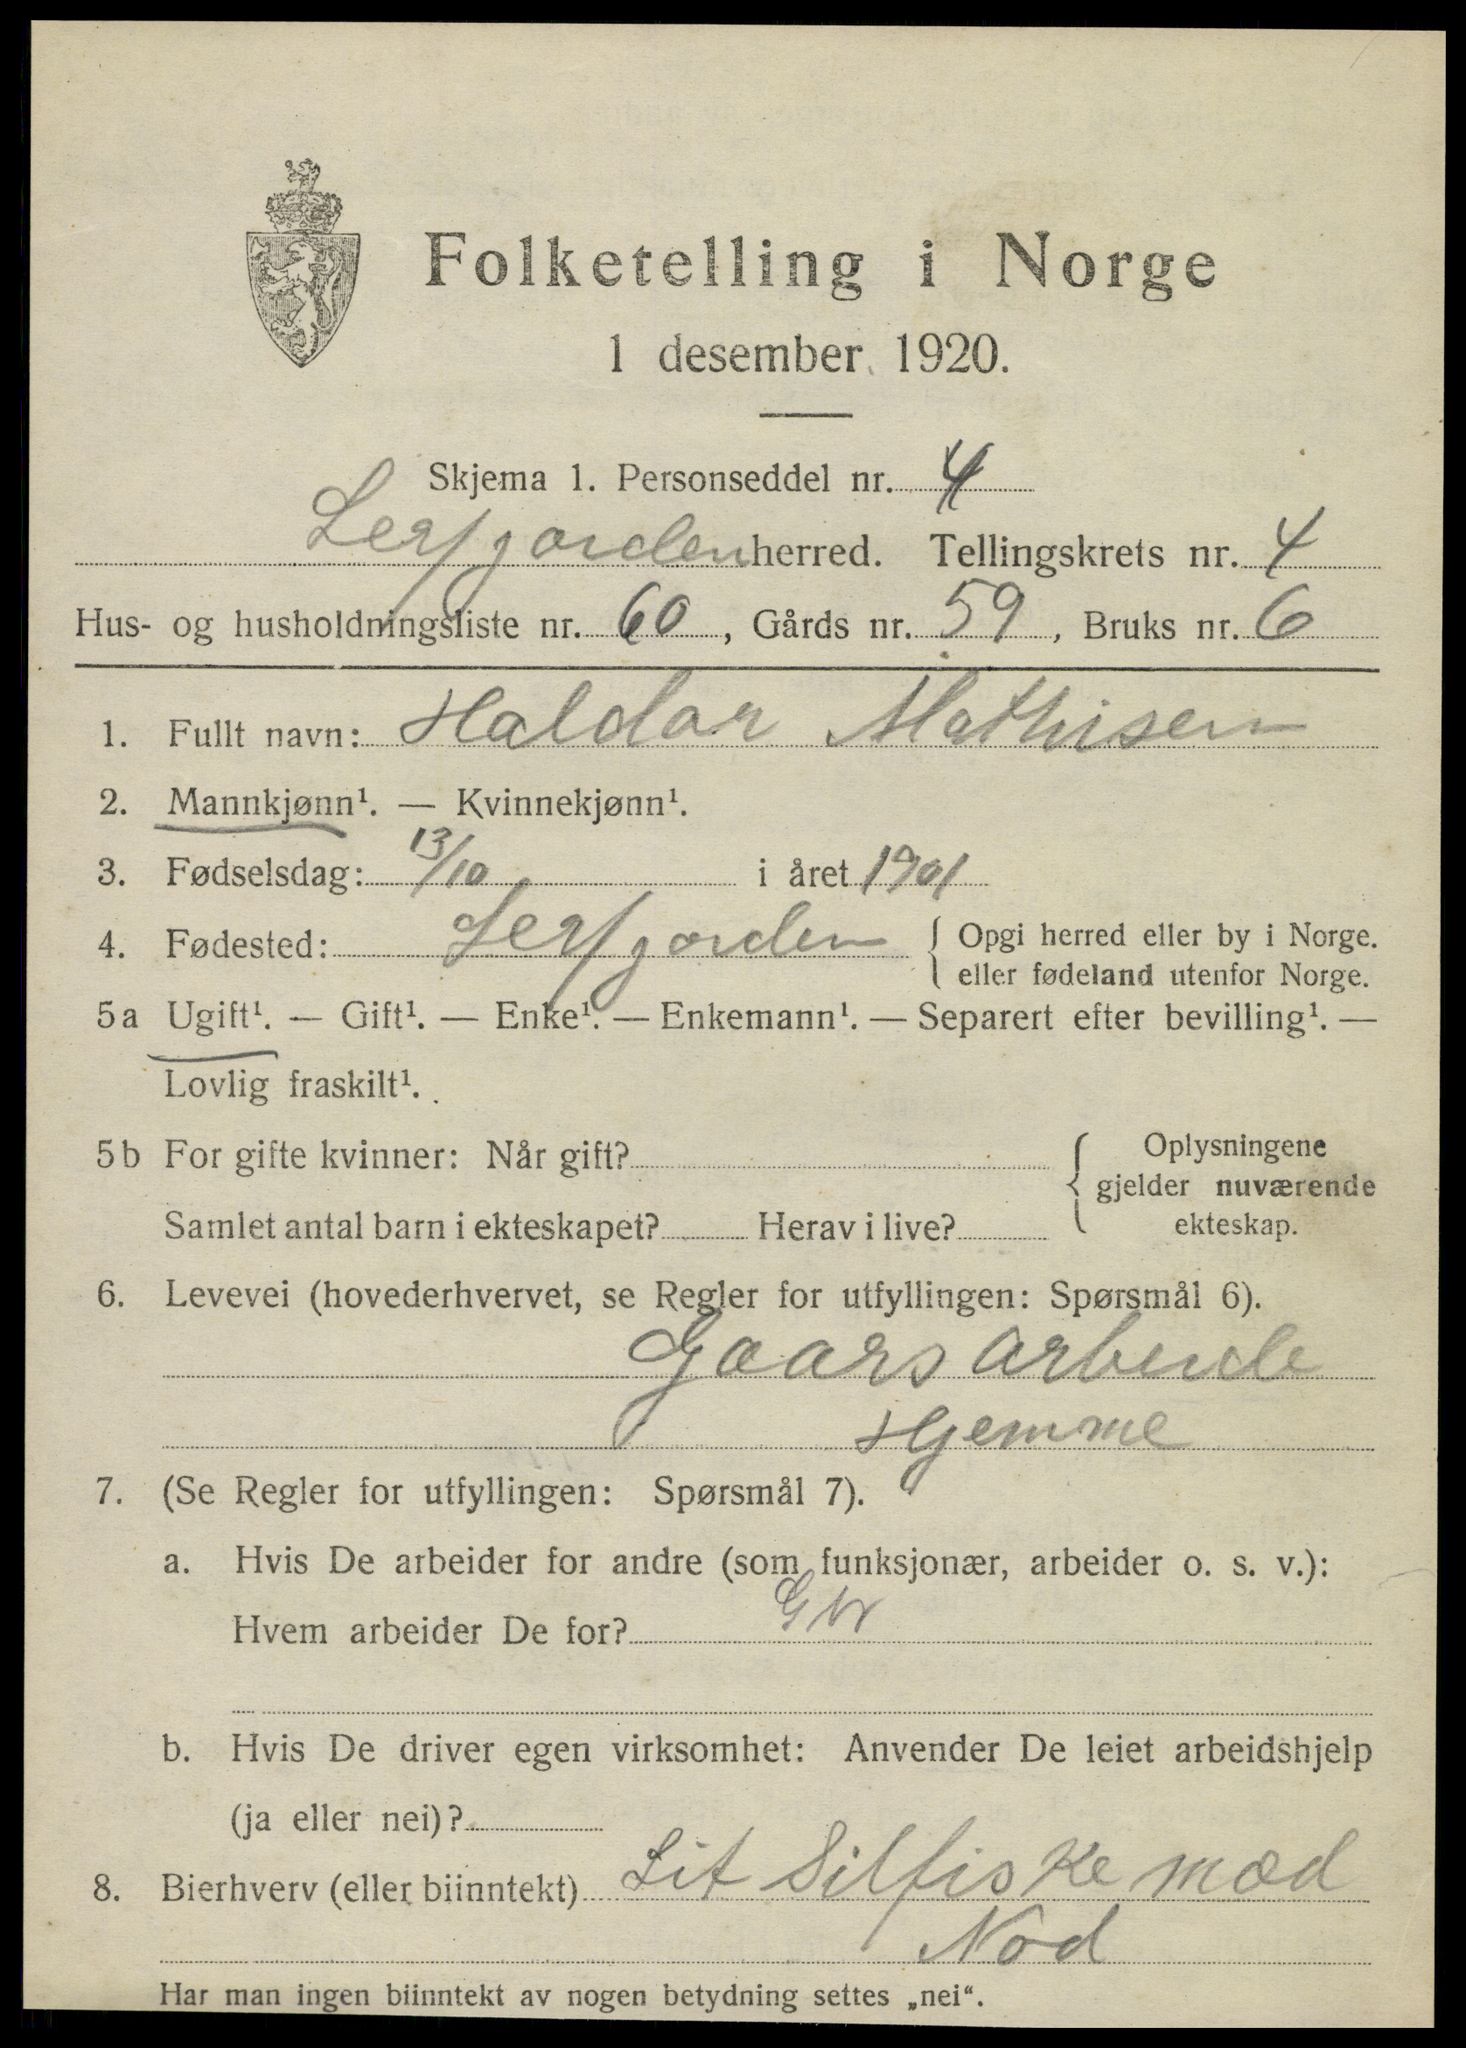 Folketelling i Norge
1 desember 1920.
Skjema 1. Personseddel nr. 4
Lerfjorden herred. Tellingskrets nr. 4
Hus- og husholdningsliste nr. 60, Gårds nr. 59, Bruks nr. 6
1. Fullt navn: Haldor Mathisen
2. Mannkjønn¹. — Kvinnekjønn¹.
3. Fødselsdag: 13/10 i året 1901
4. Fødested: Lerfjorden { Opgi herred eller by i Norge.
eller fødeland utenfor Norge.
5a Ugift¹. — Gift¹. — Enke¹. — Enkemann¹. — Separert efter bevilling¹. —
Lovlig fraskilt¹.
5b For gifte kvinner: Når gift? { Oplysningene
gjelder nuværende
Samlet antal barn i ekteskapet? Herav i live? ekteskap.
6. Levevei (hovederhvervet, se Regler for utfyllingen: Spørsmål 6).
Gaars arbeide
Hjemme
7. (Se Regler for utfyllingen: Spørsmål 7).
a. Hvis De arbeider for andre (som funksjonær, arbeider o. s. v.):
Hvem arbeider De for?
b. Hvis De driver egen virksomhet: Anvender De leiet arbeidshjelp
(ja eller nei)?
8. Bierhverv (eller biinntekt) Lit Silfiske mæd
Nod
Har man ingen biinntekt av nogen betydning settes „nei“.